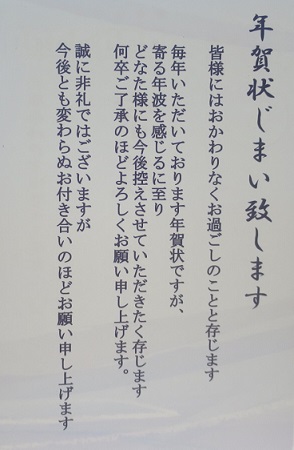 年賀状じまい致します
皆様にはおかわりなくお過ごしのことと存じます
毎年いただいております年賀状ですが、
寄る年波を感じるに至り
どなた様にも今後控えさせていただきたく存じます
何卒ご了承のほどよろしくお願い申し上げます。
誠に非礼ではございますが
今後とも変わらぬお付き合いのほどお願い申し上げます